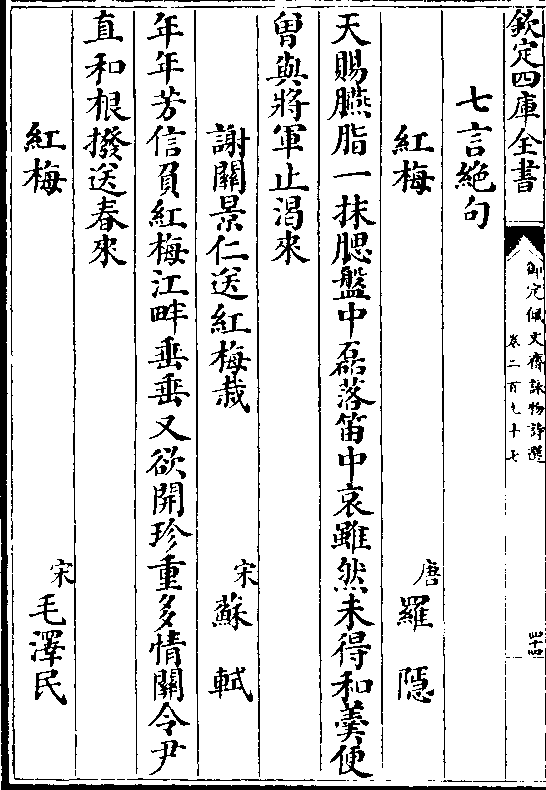 欽定四庫全書
御定佩文齋詠物詩選
卷二百九十七
四十四
七言絶句
紅梅
唐 羅隱
天賜臙脂一抹腮盤中磊落笛中哀雖然未得和羹便
曽與將軍止渴來
謝關景仁送紅梅栽
宋 蘇軾
年年芳信負紅梅江畔垂垂又欲開珍重多情關令尹
直和根撥送春來
紅梅
宋 毛澤民